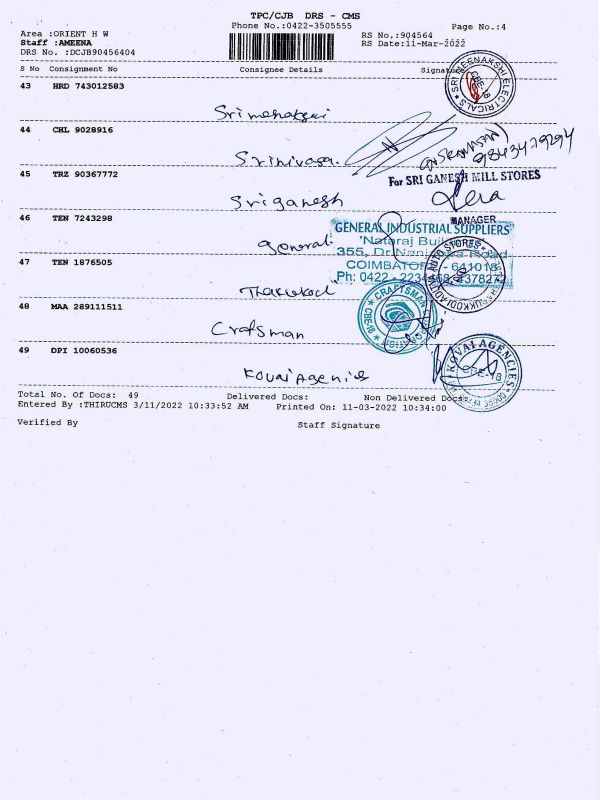 TPC/CJB DRS - CMS
Phone No.:0422-3505555
Page No.:4
Area :ORIENT H W
RS No.:904564
Staff :AMEENA
RS Date:11-Mar-2022
DRS No. :DCJB90456404
S No Consignment No Consignee Details Signature
43 HRD 743012583
SRI MEENAKSHI ELECTRICALS
CBE-18
44 CHL 9028916
Srinivasa
9843479294
45 TRZ 90367772
For SRI GANESH MILL STORES
Sri ganesh
MANAGER
46 TEN 7243298
GENERAL INDUSTRIAL SUPPLIERS
General
'Nataraj
355, Dr.
COIMBATORE - 641018
Ph: 0422 -
AUTO STORES
47 TEN 1876505
CRAFTSMAN
CBE-18
48 MAA 289111511
Craftsman
49 DPI 10060536
KOVAI AGENCIES
CBE-18
Kovai Agencies
Total No. Of Docs: 49 Delivered Docs: Non Delivered Docs:
Entered By :THIRUCMS 3/11/2022 10:33:52 AM Printed On: 11-03-2022 10:34:00
Verified By Staff Signature